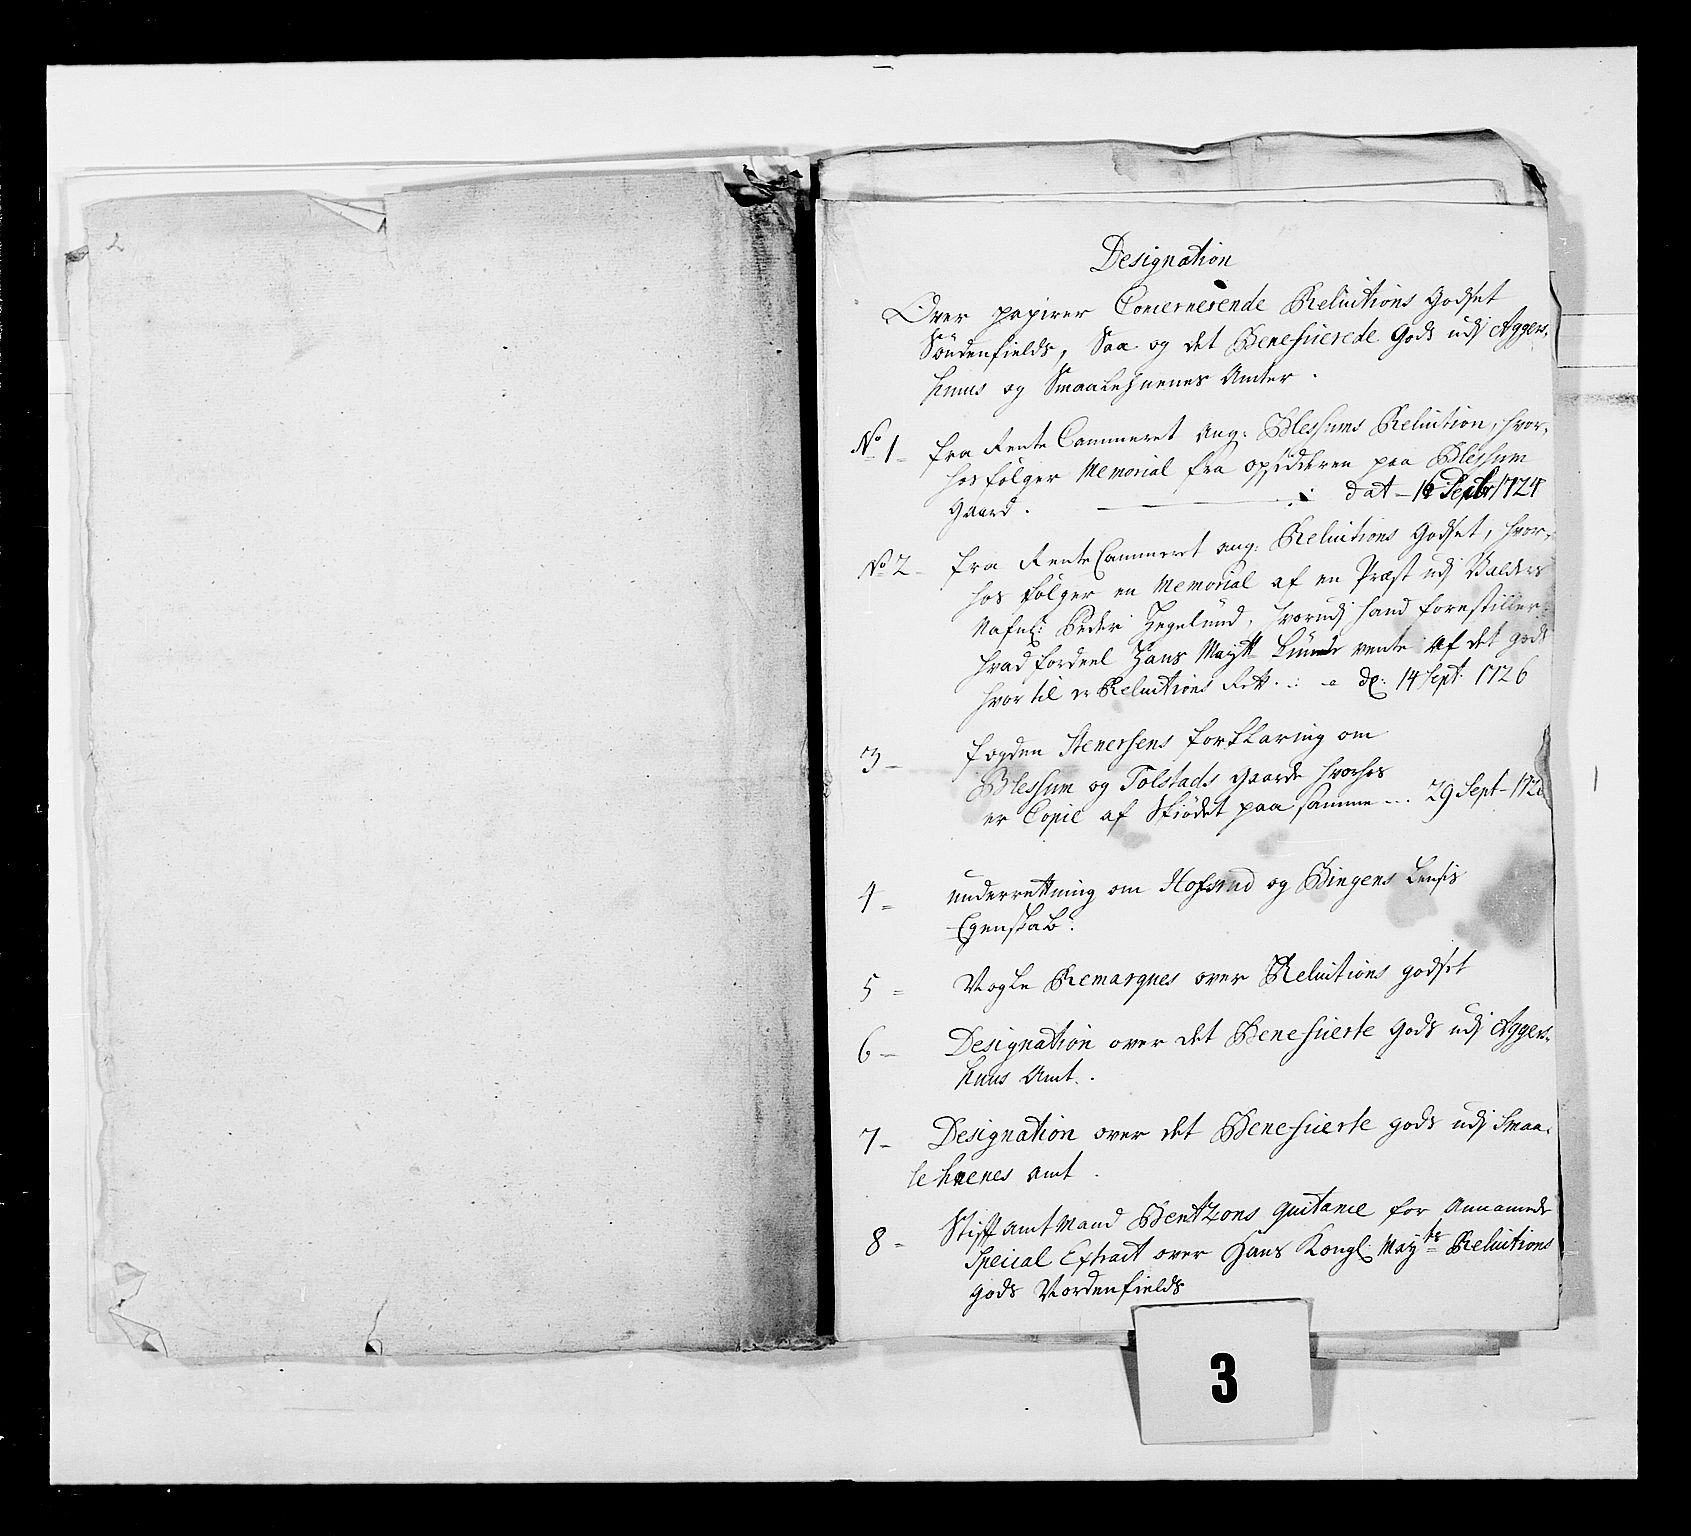 2
Designation
Over papirer Concernerende Reluitions Godset
Söndenfields, Saa og det Beneficerede Gods udj Agger-
huus og Smaalehnenes Amter.
No 1 fra Rente Cammeret ang: Blessums Reluition, hvor-
hos følger Memorial fra opsidderen paa Blessum
Gaard. dat - 16 Septbr 1724
No 2 fra Rente Cammeret ang: Reluitions Godset, hvor-
hos følger en Memorial af en Præst udj Valders
Nafnl: Peder Hegelund, hvorudj hand forestiller
hvad fordeel Hans Maytt kunde vente af det gods
hvor til er Reluitions Rett. d: 14 Sept. 1726
3 - fogden Stenersens forklaring om
Blessum og Tolstads gaarde hvorhos
er Copie af Skiødet paa samme ... 29 Sept - 172
4 - underrettning om Hofsrud og Bingens
Egenskab.
5 - Nogle Remarques over Reluitions godset
6 - Designation over det Beneficerte Gods udj Agger-
huus Amt.
7 - Designation over det Beneficerte gods udj Smaa-
lehnenes Amt.
8 - Stiftamtmand Bentzons quitance for Annammede
Special Extract over Hans Kongl Mayts Reluitions
gods Nordenfields
3